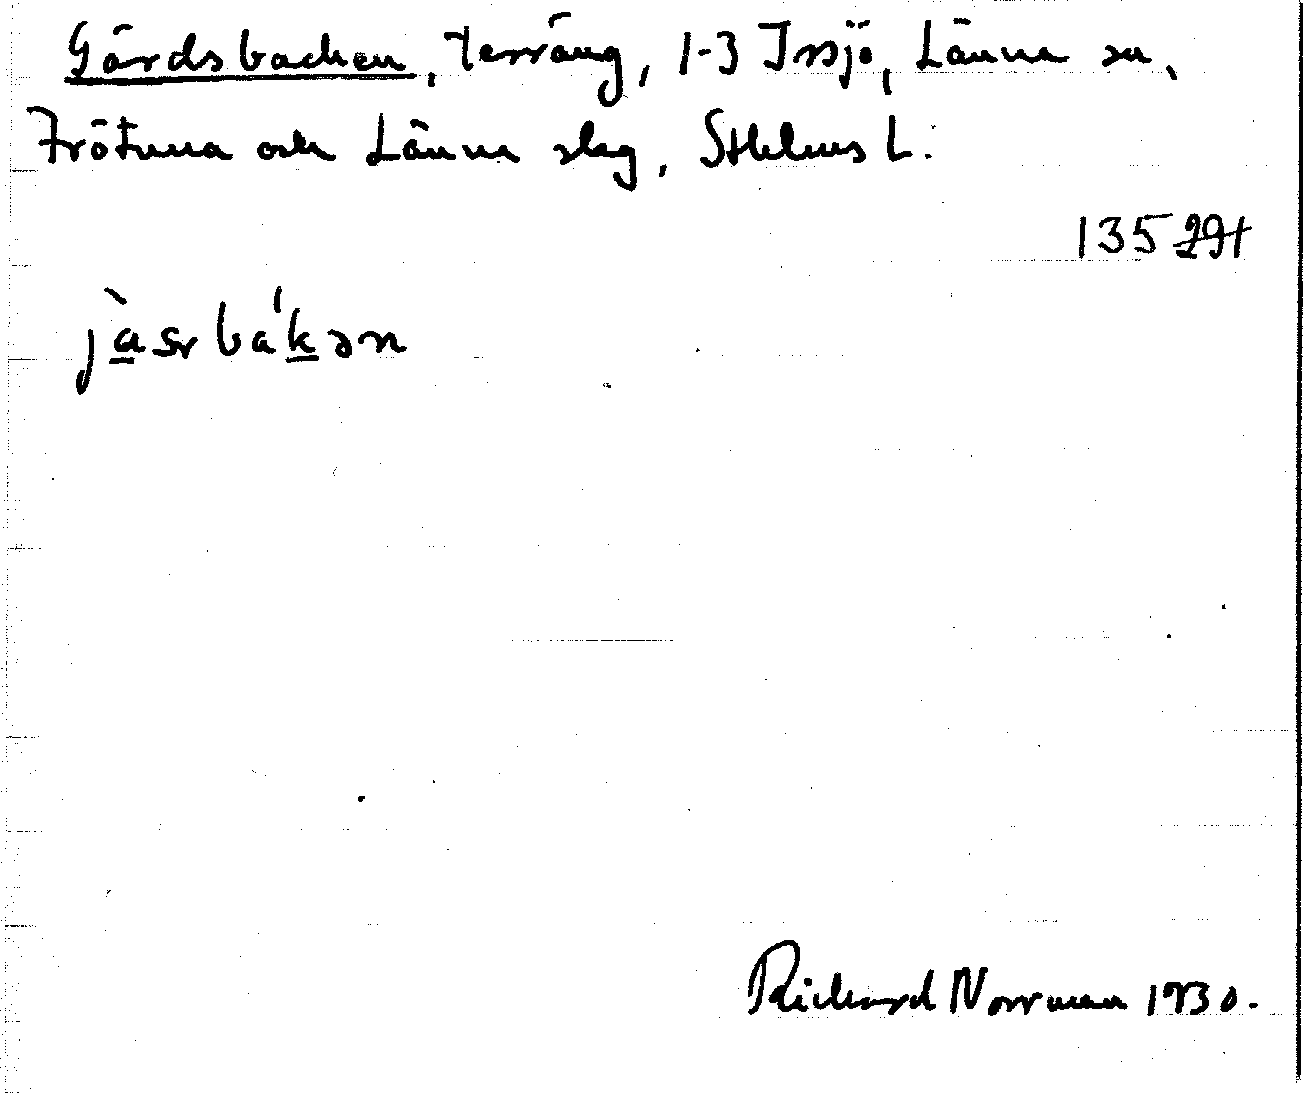 Gärdsbacken, terräng, 1-3 Irsjö, Länna sn,
Frötuna och Länna slag, Sthlms L.
135 291
Richard Norrman 1930.